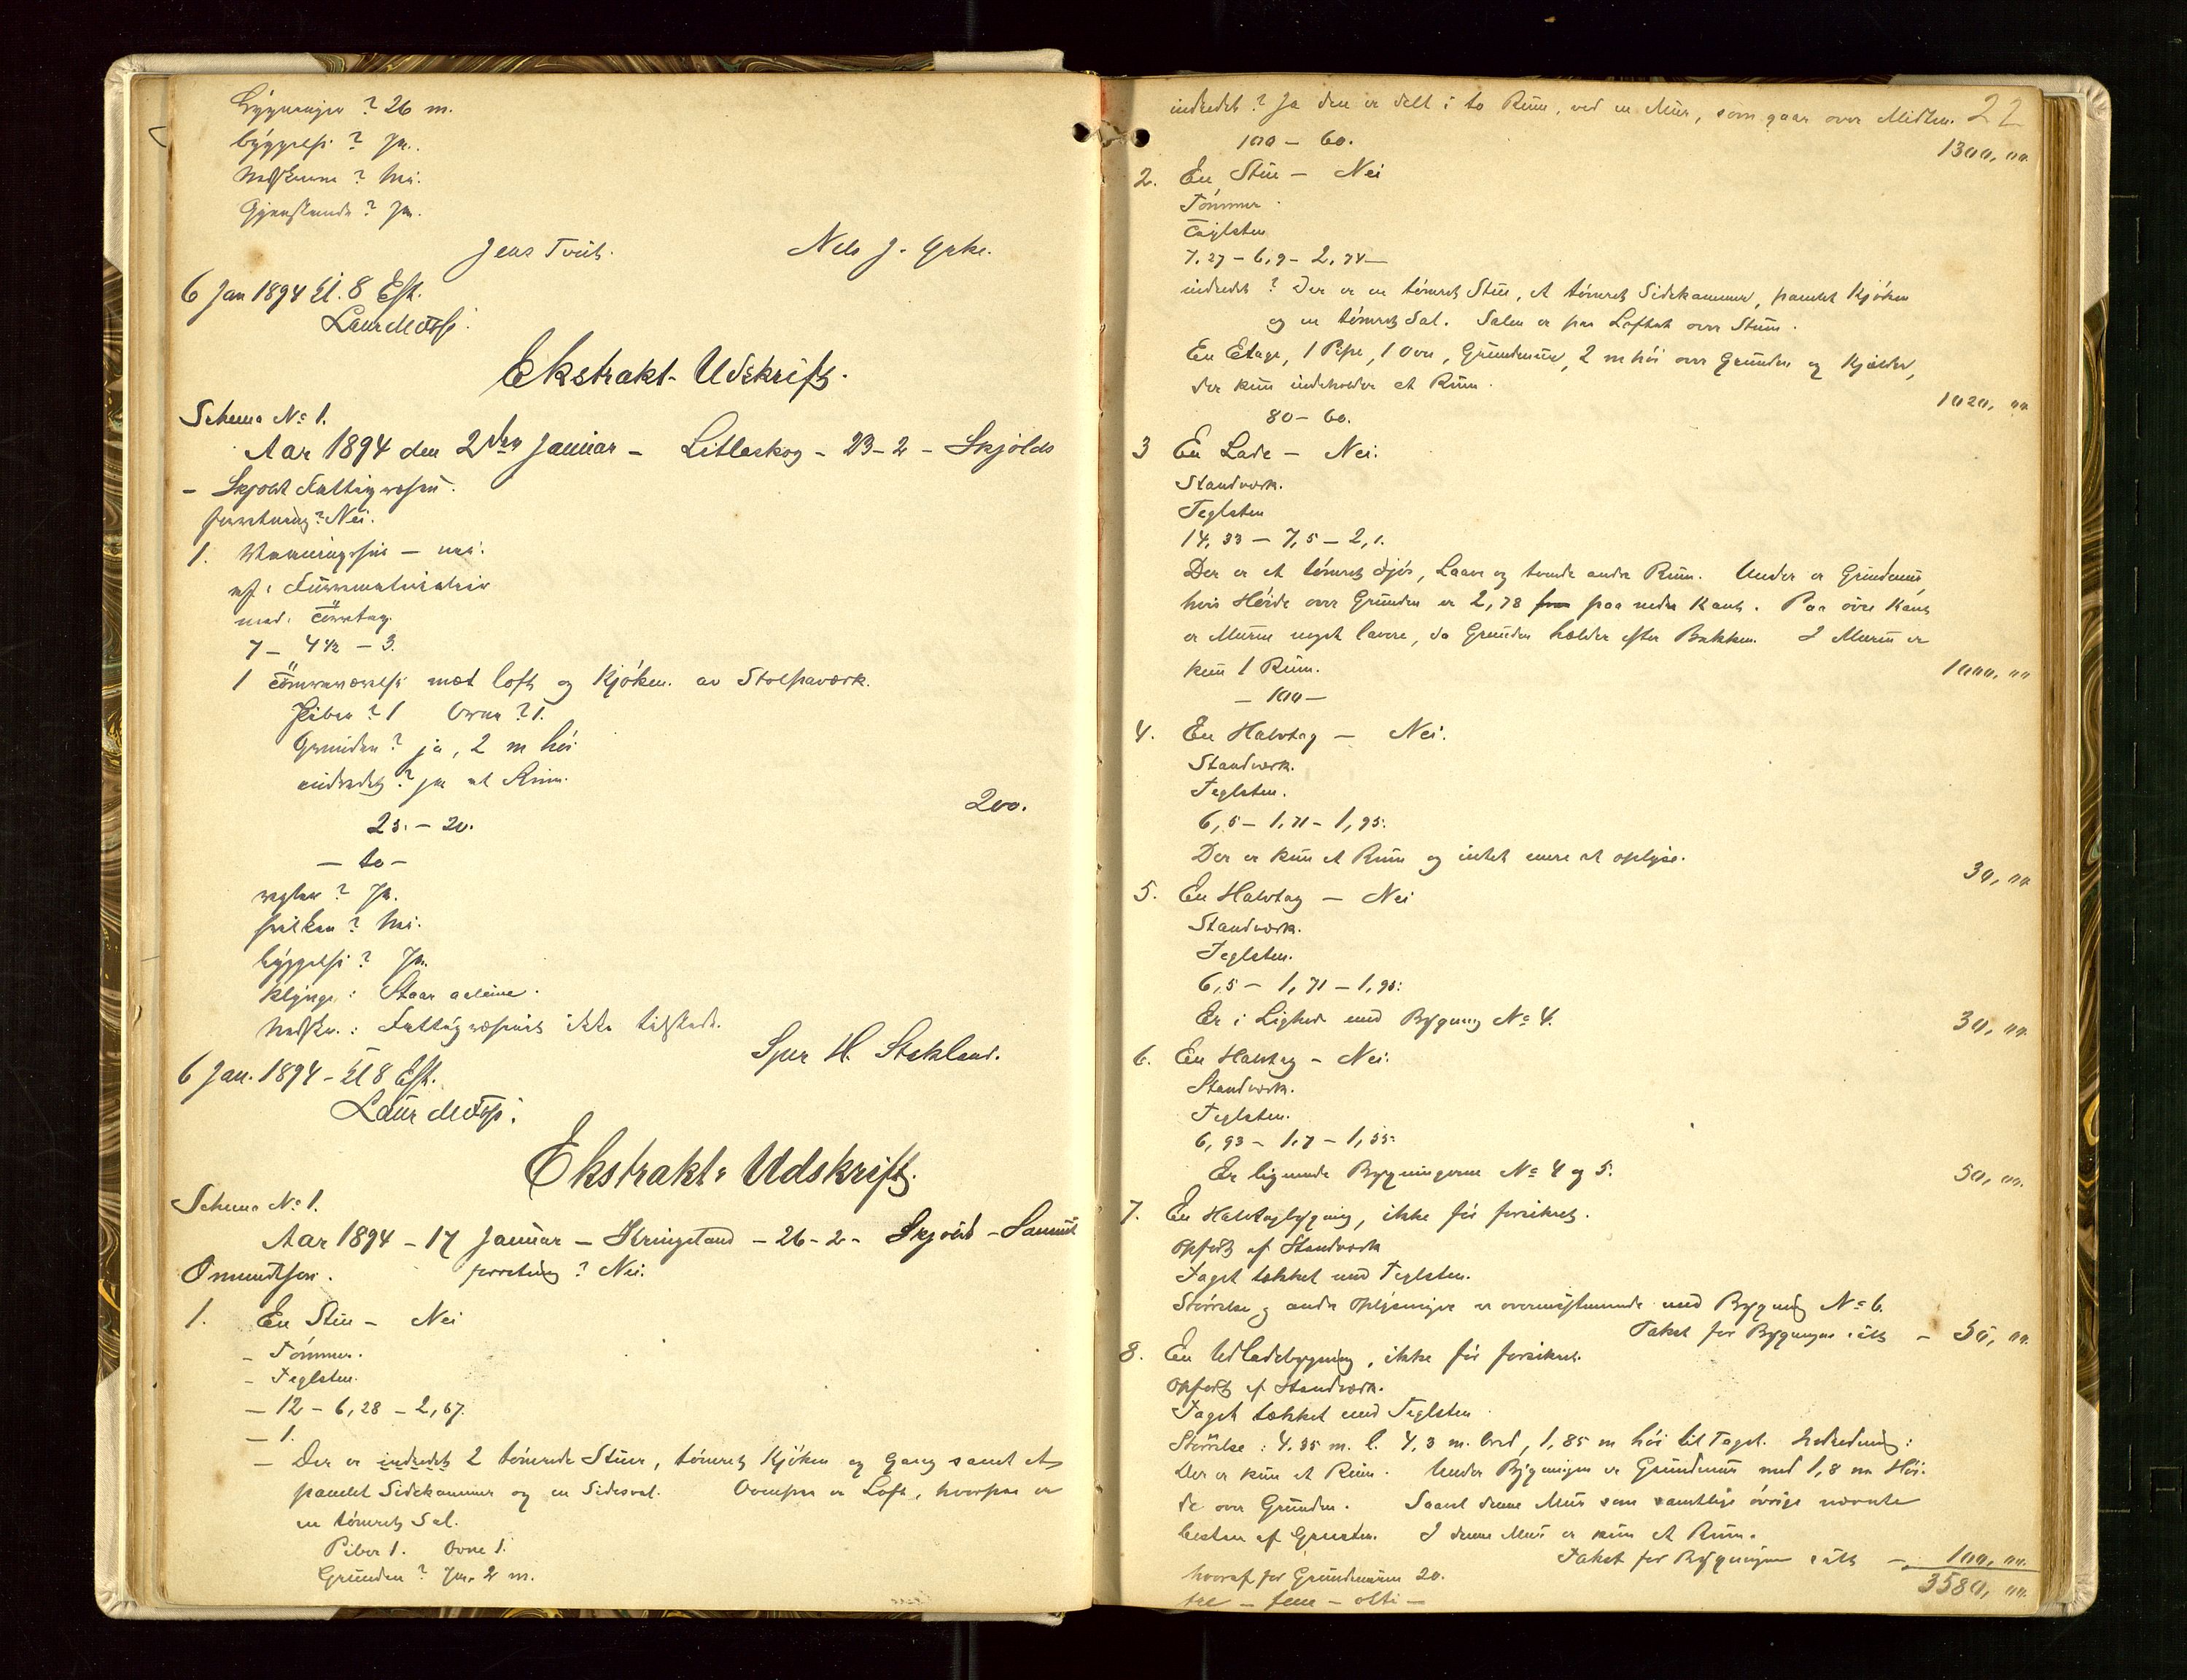 Bygninger? 26 m.
byggelse? Ja.
Nei.
Gjenstande? Ja.
Jens Tveit. Nels J.
6 Jan 1894 Kl. 8 Eft.
Ekstrakt-Udskrift.
Schema No 1.
Aar 1894 den 2den Januar - Litleskog - 23-2 - Skjolds
- Skjold Fattigvæsen.
forretning? Nei.
1. Vaaningshus - nei.
af:
med:
7 - 4½ - 3.
1 med loft og Kjøken. av Stolpaværk.
Piber? 1 Ovne? 1.
Grunden? ja, 2 m høi
indredet? ja et Rum.
200.
25. - 20.
- to -
Ja.
Nei.
byggelse? Ja.
klynge: Staar aaleine.
Fattigvæsenet ikke tilstede.
H. Stakland.
6 Jan. 1894 - Kl 8 Eft.
Ekstrakt-Udskrift.
Schema No 1.
Aar 1894 - 17 Januar - Kringeland - 26-2 - Skjold - Samuel
Omundsen. forretning? Nei.
1. En Stue - Nei
- Tømmer.
- Teglsten.
- 12 - 6,28 - 2,67.
- 1.
- Der er indredet 2 tømrede Stuer, tømret Kjøken og Gang samt et
panelet Sidekammer og en Sidesval. Ovenpaa er Loft, hvorpaa er
en tømret Sal.
Piber 1. Ovne 1.
Grunden? Ja. 2 m.
22
indredet? Ja den er delt i to Rum, ved en Mur, som gaar over Midten.
1300,00
100 - 60.
2. En Stue - Nei
Tømmer.
Teglsten
7,27 - 6,9 - 2,74
indredet? Der er en tømret Stue, et tømret Sidekammer, panelet Kjøken
og en tømret Sal. Salen er paa Loftet over Stuen.
En Etage, 1 Pibe, 1 Ovn, Grundmur, 2 m høi over Grunden og Kjælder,
der kun indeholder et Rum.
1020,00
80 - 60.
3 En Lade - Nei.
Standværk.
Teglsten
14,33 - 7,5 - 2,1.
Der er et tømret Fjøs, Laave og tvende andre Rum. Under er Grundmur,
hvis Høide over Grunden er 2,78 paa nedre Kant. Paa øvre Kant
er Muren noget lavere, da Grunden helder efter Bakken. I Muren er
kun 1 Rum.
1000,00
- 100 -
4. En Halvtag - Nei.
Standværk.
Teglsten.
6,5 - 1,71 - 1,95.
Der er kun et Rum og intet mere at oplyse.
30,00
5. En Halvtag - Nei
Standværk.
Teglsten.
6,5 - 1,71 - 1,95.
Er i Lighed med Bygning No 4.
30,00
6. En Halvtag - Nei.
Standværk.
Teglsten.
6,93 - 1,7 - 1,55.
Er lignende Bygningerne No 4 og 5.
50,00
7. En Halvtagbygning, ikke før forsikret.
Opført af Standværk
Taget tækket med Teglsten.
Størrelse og andre Oplysninger er overensstemmende med Bygning No 6.
Takst for Bygningen sat - 50,00
8. En Udladebygning, ikke før forsikret.
Opført af Standværk.
Taget tækket med Teglsten
Størrelse: 4,35 m. l. 4,3 m. bred, 1,85 m høi til Taget. Indredning:
Der er kun et Rum. Under Bygningen er Grundmur med 1,8 m Høi-
de over Grunden. Saavel denne Mur som samtlige øvrige nævnte
bestaar af Graasten. I denne Mur er kun et Rum.
Takst for Bygningen sat - 100,00
hvoraf for Grundmuren 20.
3580,00
tre - fem - otti -